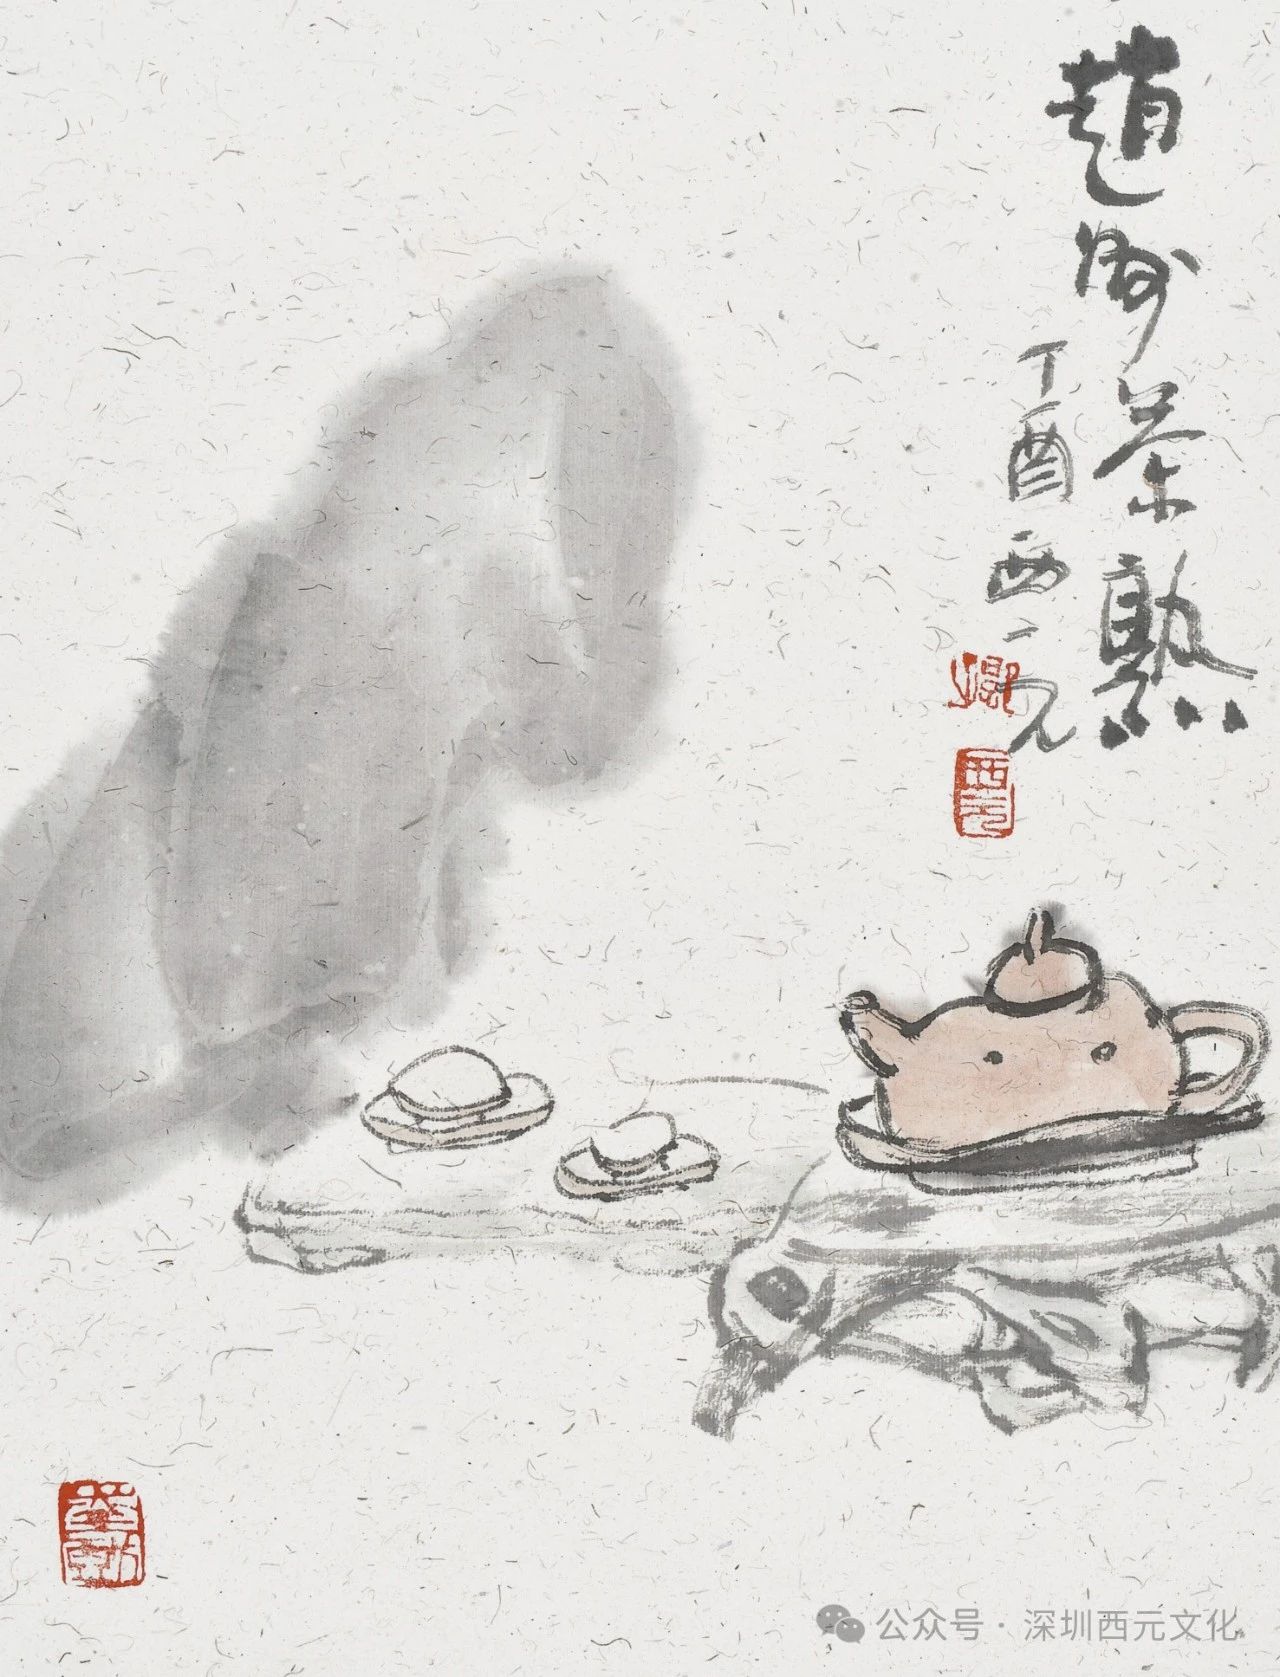 趙州茶熟
丁酉西元
西元
公众号·深圳西元文化